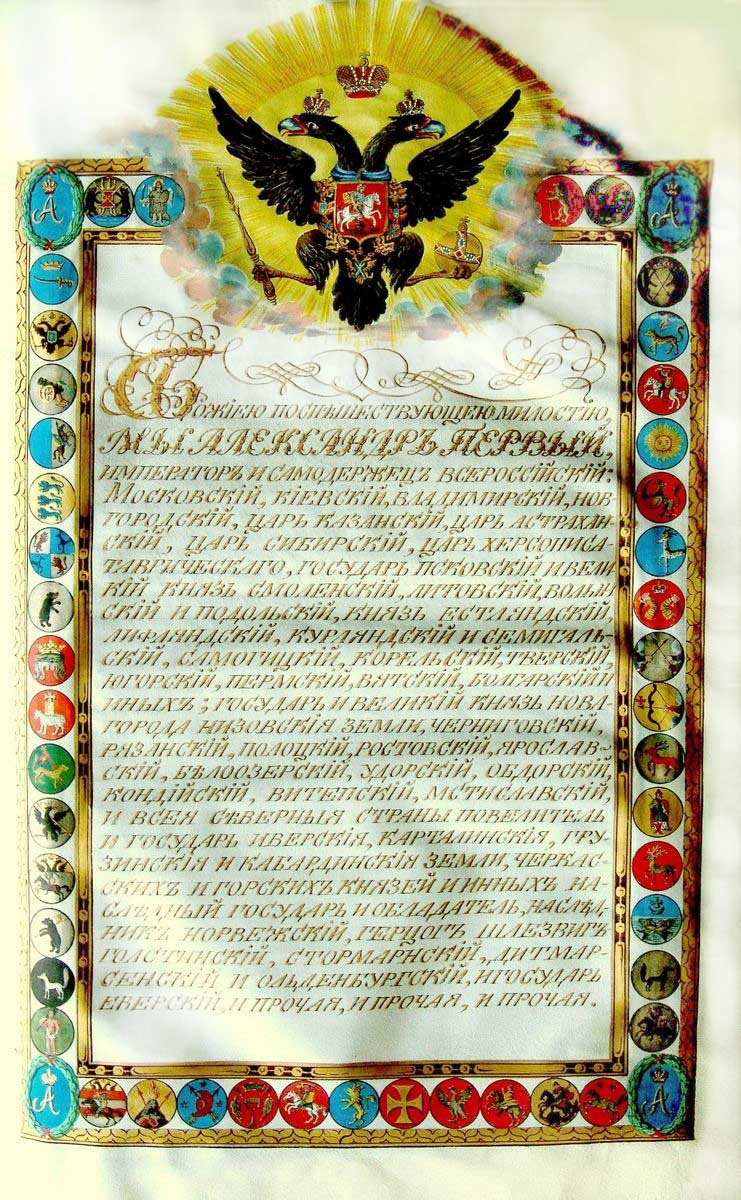 А
А
БОЖІЕЮ ПОСПѢШЕСТВУЮЩЕЮ МИЛОСТІЮ,
МЫ АЛЕКСАНДРЪ ПЕРВЫЙ,
ИМПЕРАТОРЪ И САМОДЕРЖЕЦЪ ВСЕРОССІЙСКІЙ:
МОСКОВСКІЙ, КІЕВСКІЙ, ВЛАДИМИРСКІЙ, НОВ-
ГОРОДСКІЙ, ЦАРЬ КАЗАНСКІЙ, ЦАРЬ АСТРАХАН-
СКІЙ, ЦАРЬ СИБИРСКІЙ, ЦАРЬ ХЕРСОНИСА-
ТАВРИЧЕСКАГО, ГОСУДАРЬ ПСКОВСКІЙ И ВЕЛИ-
КІЙ КНЯЗЬ СМОЛЕНСКІЙ, ЛИТОВСКІЙ, ВОЛЫН-
СКІЙ И ПОДОЛЬСКІЙ, КНЯЗЬ ЕСТЛЯНДСКІЙ,
ЛИФЛЯНДСКІЙ, КУРЛЯНДСКІЙ И СЕМИГАЛЬ-
СКІЙ, САМОГИЦКІЙ, КОРЕЛЬСКІЙ, ТВЕРСКІЙ,
ЮГОРСКІЙ, ПЕРМСКІЙ, ВЯТСКІЙ, БОЛГАРСКІЙ И
ИНЫХЪ; ГОСУДАРЬ И ВЕЛИКІЙ КНЯЗЬ НОВА-
ГОРОДА НИЗОВСКІЯ ЗЕМЛИ, ЧЕРНИГОВСКІЙ,
РЯЗАНСКІЙ, ПОЛОЦКІЙ, РОСТОВСКІЙ, ЯРОСЛАВ-
СКІЙ, БѢЛООЗЕРСКІЙ, УДОРСКІЙ, ОБДОРСКІЙ,
КОНДІЙСКІЙ, ВИТЕПСКІЙ, МСТИСЛАВСКІЙ,
И ВСЕЯ СѢВЕРНЫЯ СТРАНЫ ПОВЕЛИТЕЛЬ
И ГОСУДАРЬ ИВЕРСКІЯ, КАРТАЛИНСКІЯ, ГРУ-
ЗИНСКІЯ И КАБАРДИНСКІЯ ЗЕМЛИ, ЧЕРКАС-
СКИХЪ И ГОРСКИХЪ КНЯЗЕЙ И ИННЫХЪ НА-
СЛѢДНЫЙ ГОСУДАРЬ И ОБЛАДАТЕЛЬ, НАСЛѢД-
НИКЪ НОРВЕЖСКІЙ, ГЕРЦОГЪ ШЛЕЗВИГЪ
ГОЛСТИНСКІЙ, СТОРМАРНСКІЙ, ДИТМАР-
СЕНСКІЙ И ОЛЬДЕНБУРГСКІЙ, И ГОСУДАРЬ
ЕВЕРСКІЙ, И ПРОЧАЯ, И ПРОЧАЯ, И ПРОЧАЯ.
А
А